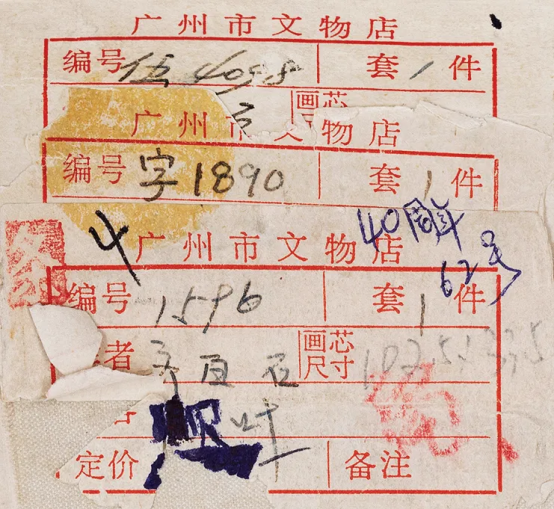 广州市文物店
编号 伍4098 套1件
画芯
广州市文物店
编号 字1890 套1件
40周年
62号
4 广州市文物店
编号 1596 套1件
者 齐白石 画芯尺寸
定价 备注